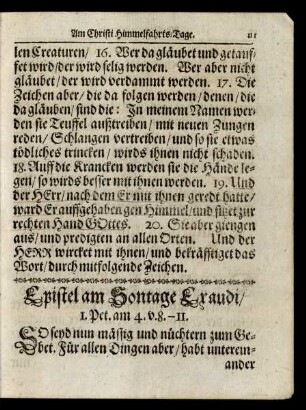 Am Christi Himmelfahrts-Tage.
len Creaturen/ 16. Wer da gläubet und getauf-
fet wird/ der wird selig werden. Wer aber nicht
gläubet/ der wird verdammt werden. 17. Die
Zeichen aber/ die da folgen werden/ denen/ die
da gläuben/ sind die: In meinem Namen wer-
den sie Teuffel außtreiben/ mit neuen Zungen
reden/ Schlangen vertreiben/ und so sie etwas
tödliches trincken/ wirds ihnen nicht schaden.
18. Auff die Krancken werden sie die Hände le-
gen/ so wirds besser mit ihnen werden. 19. Und
der HErr/ nach dem Er mit ihnen geredt hatte/
ward Er auffgehaben gen Himmel/ und sitzet zur
rechten Hand GOttes. 20. Sie aber giengen
aus/ und predigten an allen Orten. Und der
HERR wircket mit ihnen/ und bekräfftiget das
Wort/ durch mitfolgende Zeichen.
Epistel am Sontage Exaudi/
1. Pet. am 4. v. 8.-11.
SO seyd nun mässig und nüchtern zum Ge-
bet. Für allen Dingen aber/ habt unterein-
ander